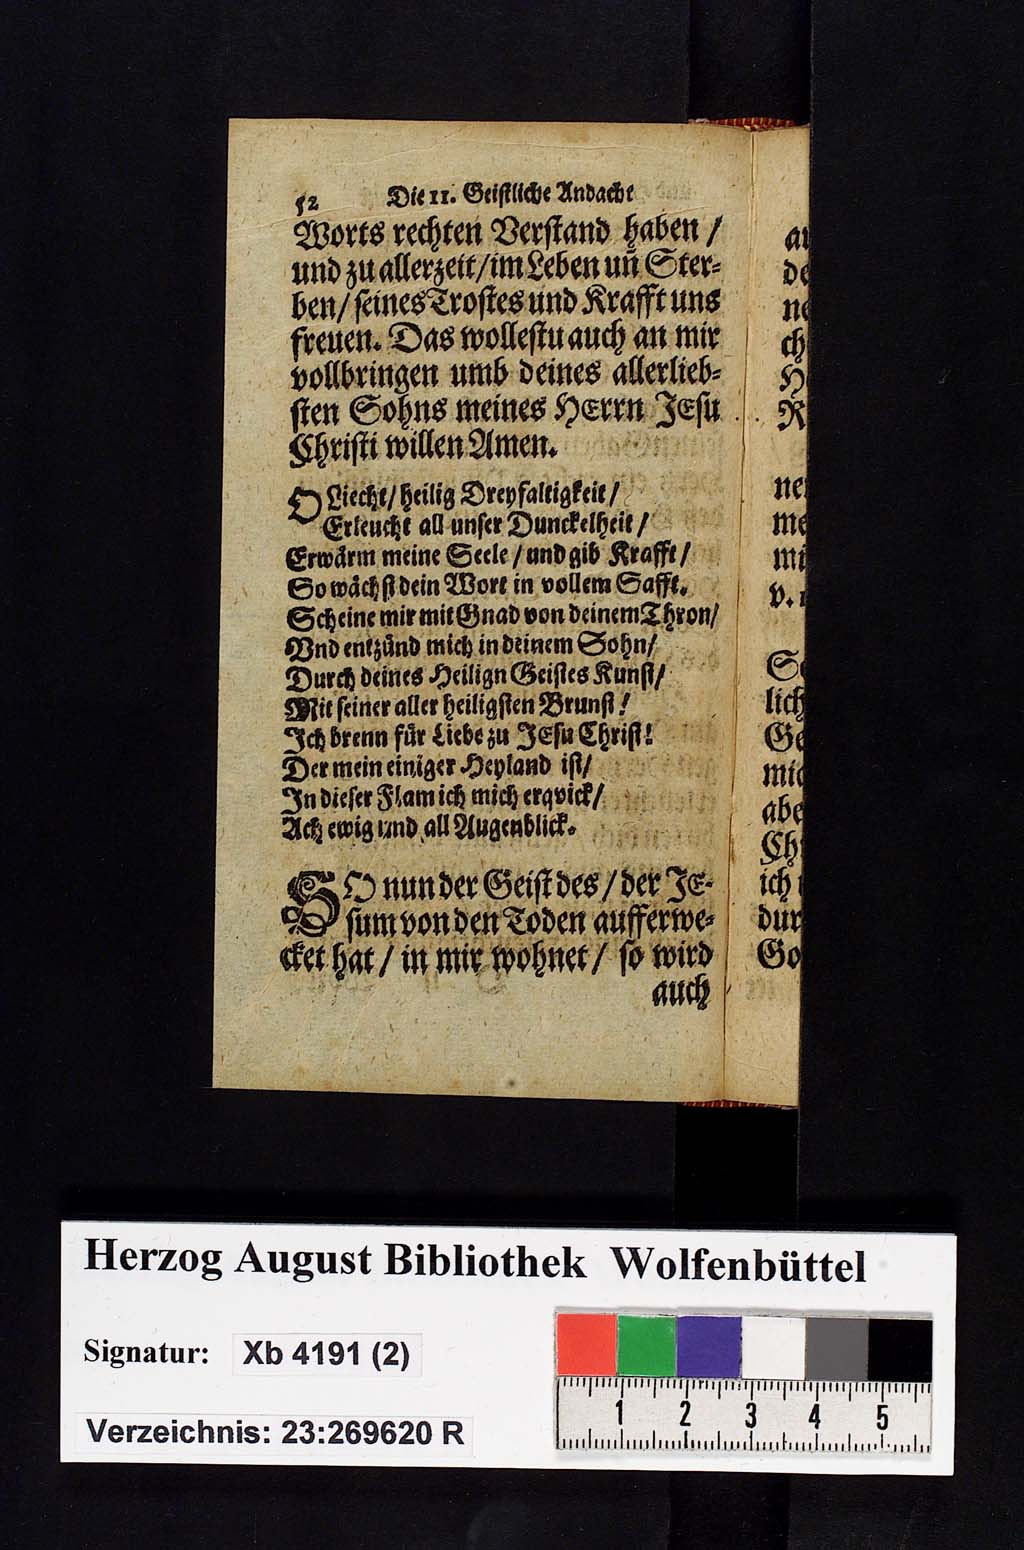 52 Die 11. Geistliche Andacht
Worts rechten Verstand haben /
und zu allerzeit / im Leben uñ Ster⸗
ben / seines Trostes und Krafft uns
freuen. Das wollestu auch an mir
vollbringen umb deines allerlieb⸗
sten Sohns meines HErrn JEsu
Christi willen Amen.
O Liecht / heilig Dreyfaltigkeit /
Erleucht all unser Dunckelheit /
Erwärm meine Seele / und gib Krafft /
So wächst dein Wort in vollem Safft.
Scheine mir mit Gnad von deinem Thron /
Vnd entzünd mich in deinem Sohn /
Durch deines Heilign Geistes Kunst /
Mit seiner aller heiligsten Brunst!
Ich brenn für Liebe zu JEsu Christ!
Der mein einiger Heyland ist /
In dieser Flam ich mich erqvick /
Ach ewig und all Augenblick.
SO nun der Geist des / der JE⸗
sum von den Toden aufferwe⸗
cket hat / in mir wohnet / so wird
auch
ne
ch
R
me
v.
lich
Ge
abe
ich
dur
Go
Herzog August Bibliothek Wolfenbüttel
Signatur: Xb 4191 (2)
Verzeichnis: 23:269620 R
1 2 3 4 5